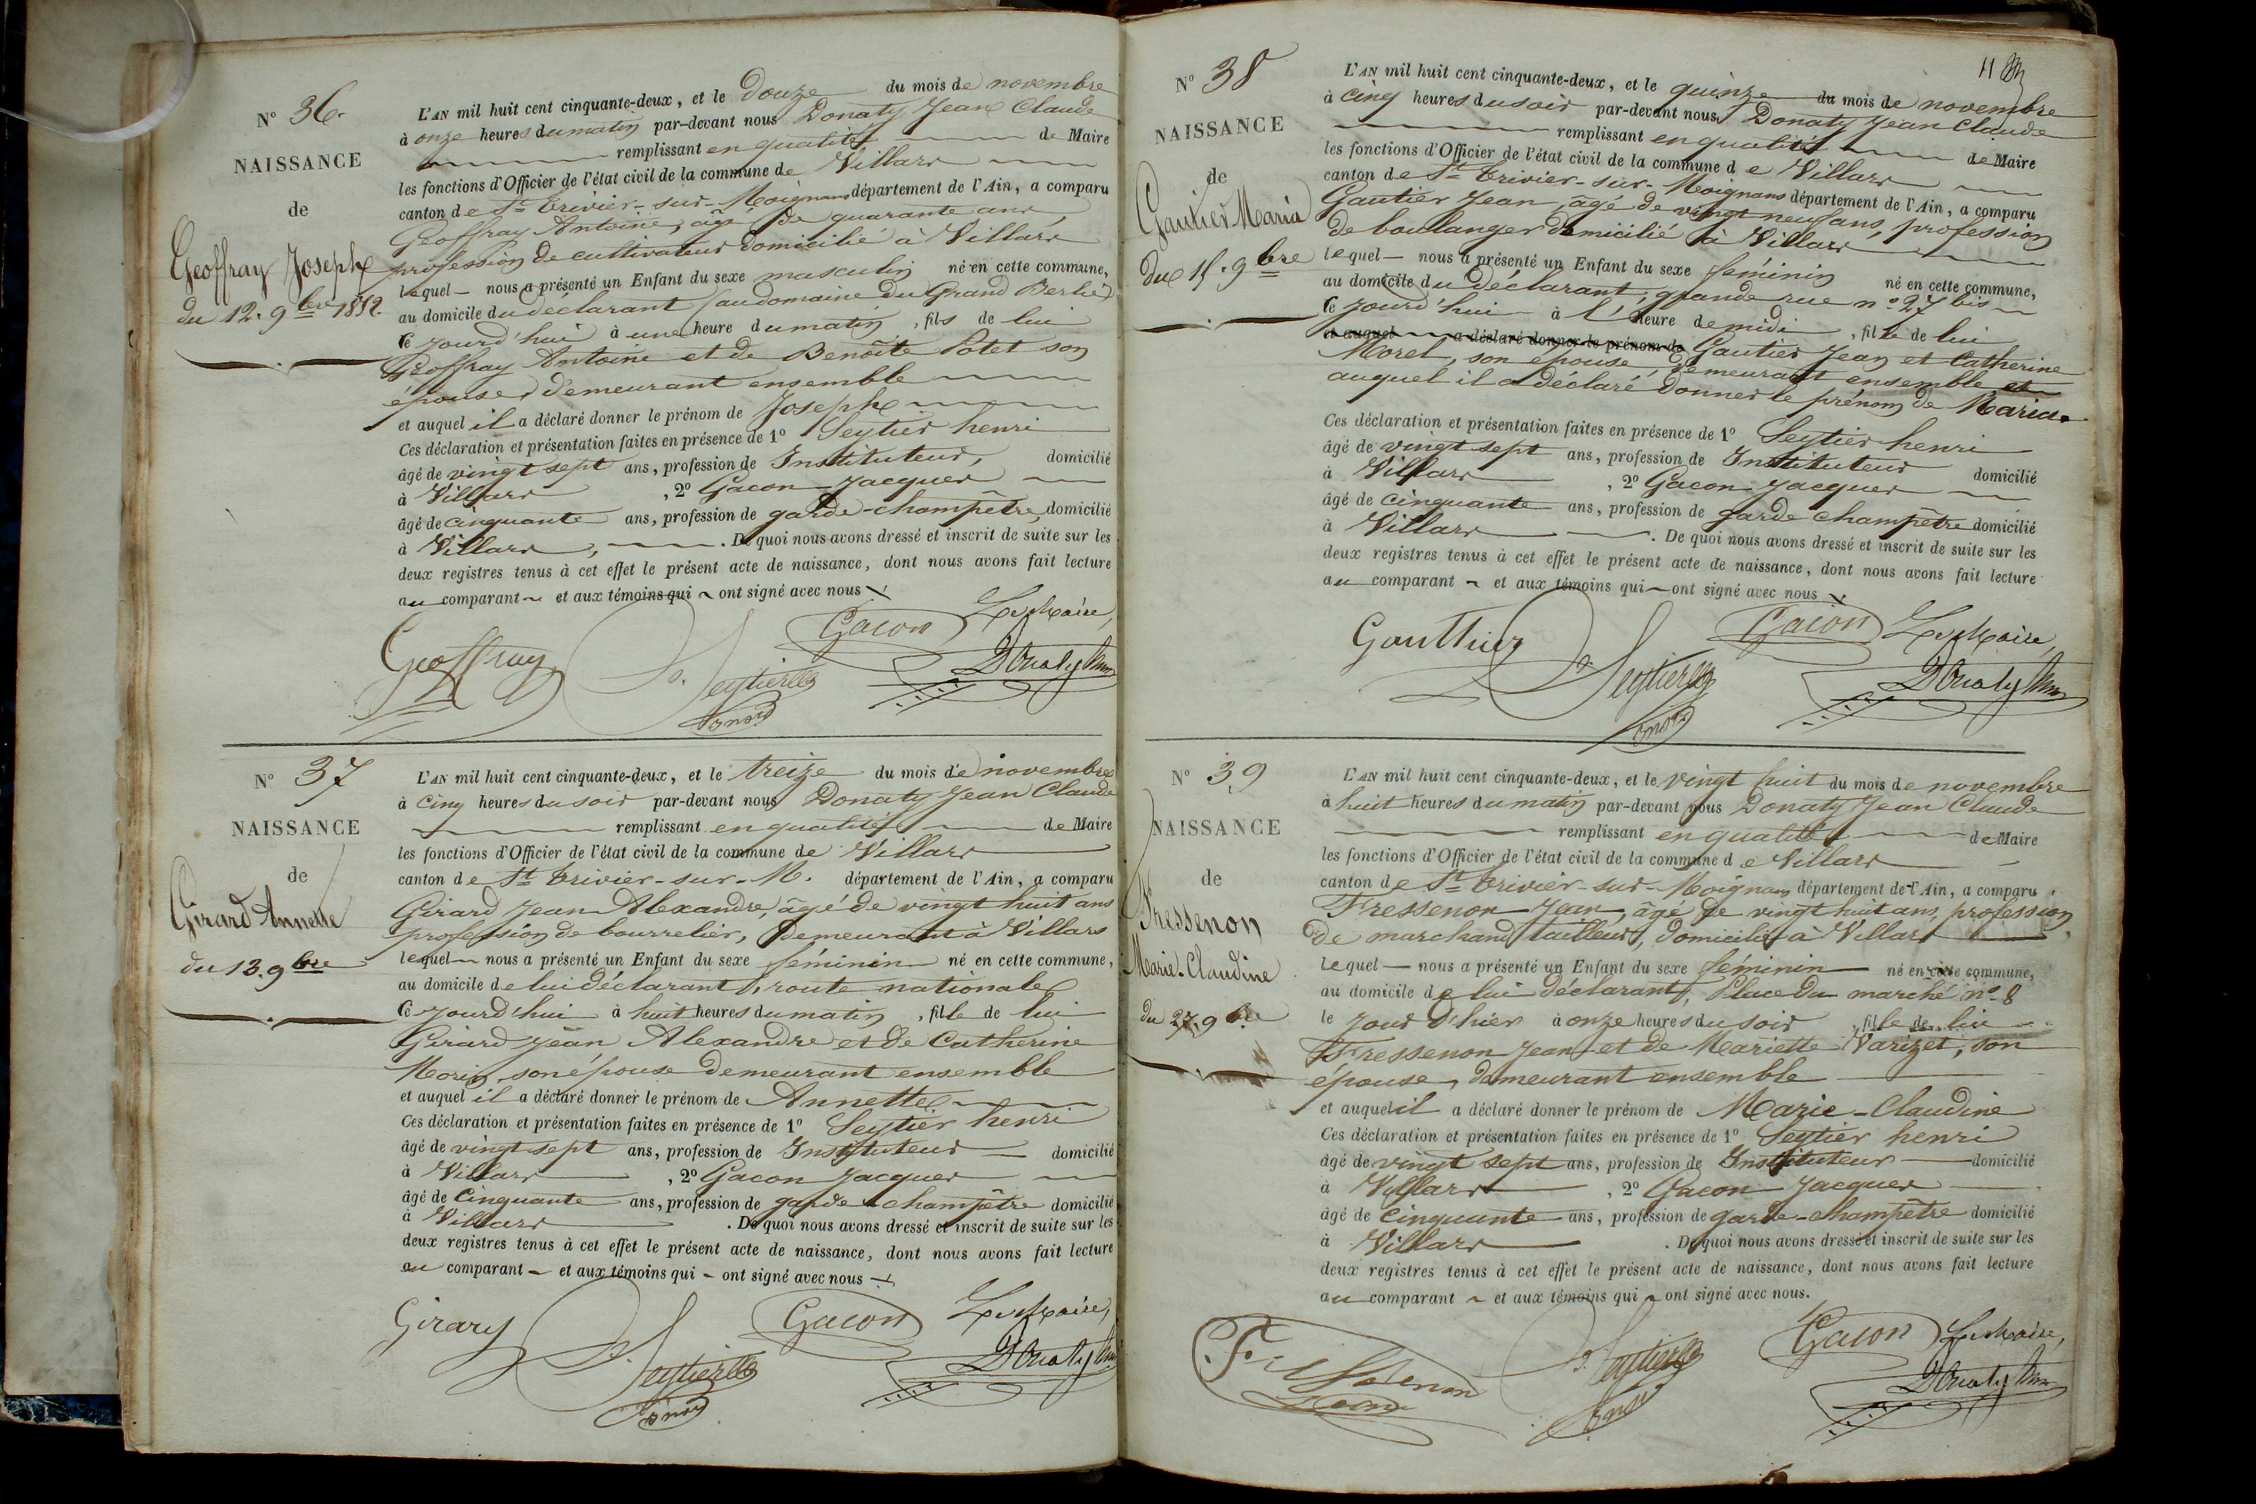 N° 36.
NAISSANCE
de
Geoffray Joseph
du 12. 9bre 1852.
L'AN mil huit cent cinquante-deux, et le douze du mois de novembre
à onze heures du matin par-devant nous Donaty Jean Claude
remplissant en qualité de Maire
les fonctions d'Officier de l'état civil de la commune de Villars
canton de St Trivier-sur-Moignans département de l'Ain, a comparu
Geoffray Antoine, âgé de quarante ans,
profession de cultivateur domicilié à Villars
lequel nous a présenté un Enfant du sexe masculin né en cette commune,
au domicile du déclarant (au domaine du Grand Berlié)
ce jourd'hui à une heure du matin, fils de lui
Geoffray Antoine et de Benoîte Potet son
épouse, demeurant ensemble
et auquel il a déclaré donner le prénom de Joseph
Ces déclaration et présentation faites en présence de 1° Seytier henri
âgé de vingt sept ans, profession de Instituteur, domicilié
à Villars, 2° Gacon Jacques
âgé de cinquante ans, profession de garde-champêtre, domicilié
à Villars, . De quoi nous avons dressé et inscrit de suite sur les
deux registres tenus à cet effet le présent acte de naissance, dont nous avons fait lecture
au comparant et aux témoins qui ont signé avec nous
Geoffray Seytier Gacon Le Maire,
Donaty
N° 37
NAISSANCE
de
Girard Annette
du 13. 9bre
L'AN mil huit cent cinquante-deux, et le treize du mois de novembre
à cinq heures du soir par-devant nous Donaty Jean Claude
remplissant en qualité de Maire
les fonctions d'Officier de l'état civil de la commune de Villars
canton de St Trivier-sur-M. département de l'Ain, a comparu
Girard Jean Alexandre, âgé de vingt huit ans
profession de bourrelier, demeurant à Villars
lequel nous a présenté un Enfant du sexe féminin né en cette commune,
au domicile de lui déclarant, route nationale
ce jourd'hui à huit heures du matin, fille de lui
Girard Jean Alexandre et de Catherine
Morin, son épouse demeurant ensemble
et auquel il a déclaré donner le prénom de Annette
Ces déclaration et présentation faites en présence de 1° Seytier henri
âgé de vingt sept ans, profession de Instituteur domicilié
à Villars, 2° Gacon Jacques
âgé de cinquante ans, profession de garde champêtre domicilié
à Villars . De quoi nous avons dressé et inscrit de suite sur les
deux registres tenus à cet effet le présent acte de naissance, dont nous avons fait lecture
au comparant et aux témoins qui ont signé avec nous
Girard Seytier Gacon Le Maire,
Donaty
11
N° 38
NAISSANCE
de
Gautier Maria
du 15. 9bre
L'AN mil huit cent cinquante-deux, et le quinze du mois de novembre
à cinq heures du soir par-devant nous Donaty Jean Claude
remplissant en qualité de Maire
les fonctions d'Officier de l'état civil de la commune de Villars
canton de St Trivier-sur-Moignans département de l'Ain, a comparu
Gautier Jean, âgé de vingt neuf ans, profession
de boulanger domicilié à Villars
lequel nous a présenté un Enfant du sexe féminin né en cette commune,
au domicile du déclarant, grande rue n° 27 bis
ce jourd'hui à l'heure de midi, fille de lui
et auquel a déclaré donner le prénom de Gautier Jean et Catherine
Morel, son épouse, demeurant ensemble et
auquel il a déclaré donner le prénom de Maria.
Ces déclaration et présentation faites en présence de 1° Seytier henri
âgé de vingt sept ans, profession de Instituteur domicilié
à Villars, 2° Gacon Jacques
âgé de cinquante ans, profession de garde champêtre domicilié
à Villars . De quoi nous avons dressé et inscrit de suite sur les
deux registres tenus à cet effet le présent acte de naissance, dont nous avons fait lecture
au comparant et aux témoins qui ont signé avec nous
Gauthier Seytier Gacon Le Maire,
Donaty
N° 39
NAISSANCE
de
Fressenon
Marie-Claudine
du 27. 9bre
L'AN mil huit cent cinquante-deux, et le vingt huit du mois de novembre
à huit heures du matin par-devant nous Donaty Jean Claude
remplissant en qualité de Maire
les fonctions d'Officier de l'état civil de la commune de Villars
canton de St Trivier-sur-Moignans département de l'Ain, a comparu
Fressenon Jean, âgé de vingt huit ans, profession
de marchand tailleur, domicilié à Villars
lequel nous a présenté un Enfant du sexe féminin né en cette commune,
au domicile de lui déclarant, Place du marché n° 8
le jour d'hier à onze heures du soir, fille de lui
Fressenon Jean et de Mariette Varizet, son
épouse, demeurant ensemble
et auquel il a déclaré donner le prénom de Marie-Claudine
Ces déclaration et présentation faites en présence de 1° Seytier henri
âgé de vingt sept ans, profession de Instituteur domicilié
à Villars, 2° Gacon Jacques
âgé de cinquante ans, profession de garde-champêtre domicilié
à Villars . De quoi nous avons dressé et inscrit de suite sur les
deux registres tenus à cet effet le présent acte de naissance, dont nous avons fait lecture
au comparant et aux témoins qui ont signé avec nous.
Seytier Gacon Le Maire,
Donaty